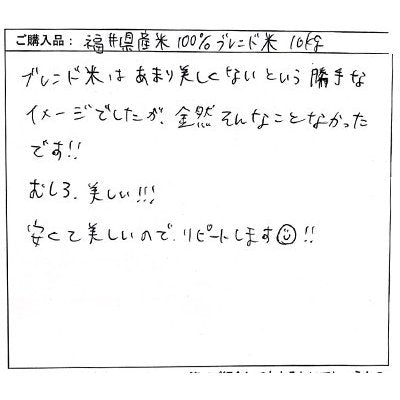 ご購入品: 福井県産米100%ブレンド米 10kg
ブレンド米はあまり美しくないという勝手な
イメージでしたが、全然そんなことなかった
です!!
むしろ、美しい!!!
安くて美しいので、リピートします☺!!